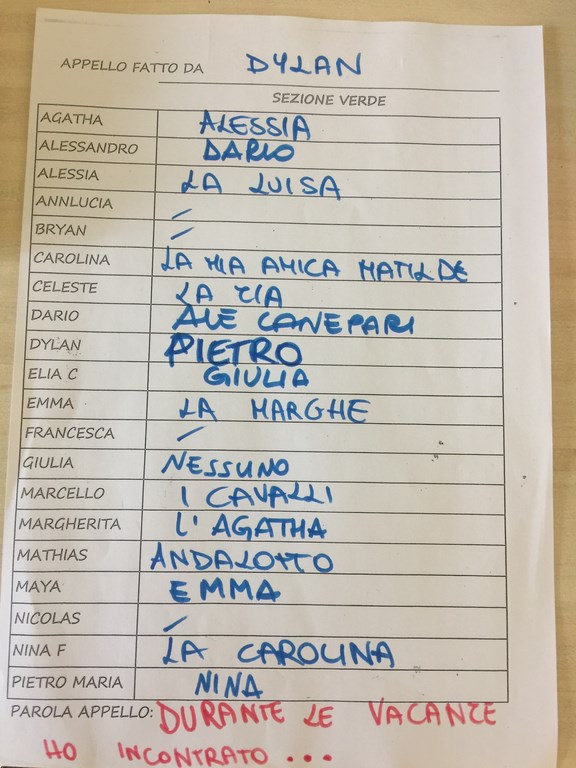 APPELLO FATTO DA DYLAN
SEZIONE VERDE
AGATHA ALESSIA
ALESSANDRO DARIO
ALESSIA LA LUISA
ANNLUCIA /
BRYAN /
CAROLINA LA MIA AMICA MATILDE
CELESTE LA ZIA
DARIO ALE CANEPARI
DYLAN PIETRO
ELIA C GIULIA
EMMA LA MARGHE
FRANCESCA /
GIULIA NESSUNO
MARCELLO I CAVALLI
MARGHERITA L'AGATHA
MATHIAS ANDALOTTO
MAYA EMMA
NICOLAS /
NINA F LA CAROLINA
PIETRO MARIA NINA
PAROLA APPELLO: DURANTE LE VACANZE
HO INCONTRATO ...